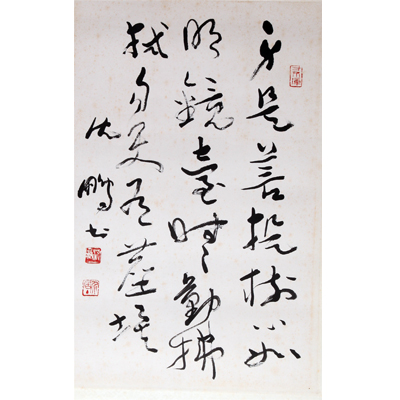 身是菩提樹心如
明鏡臺時々勤拂
拭勿使塵埃
沈鵬书